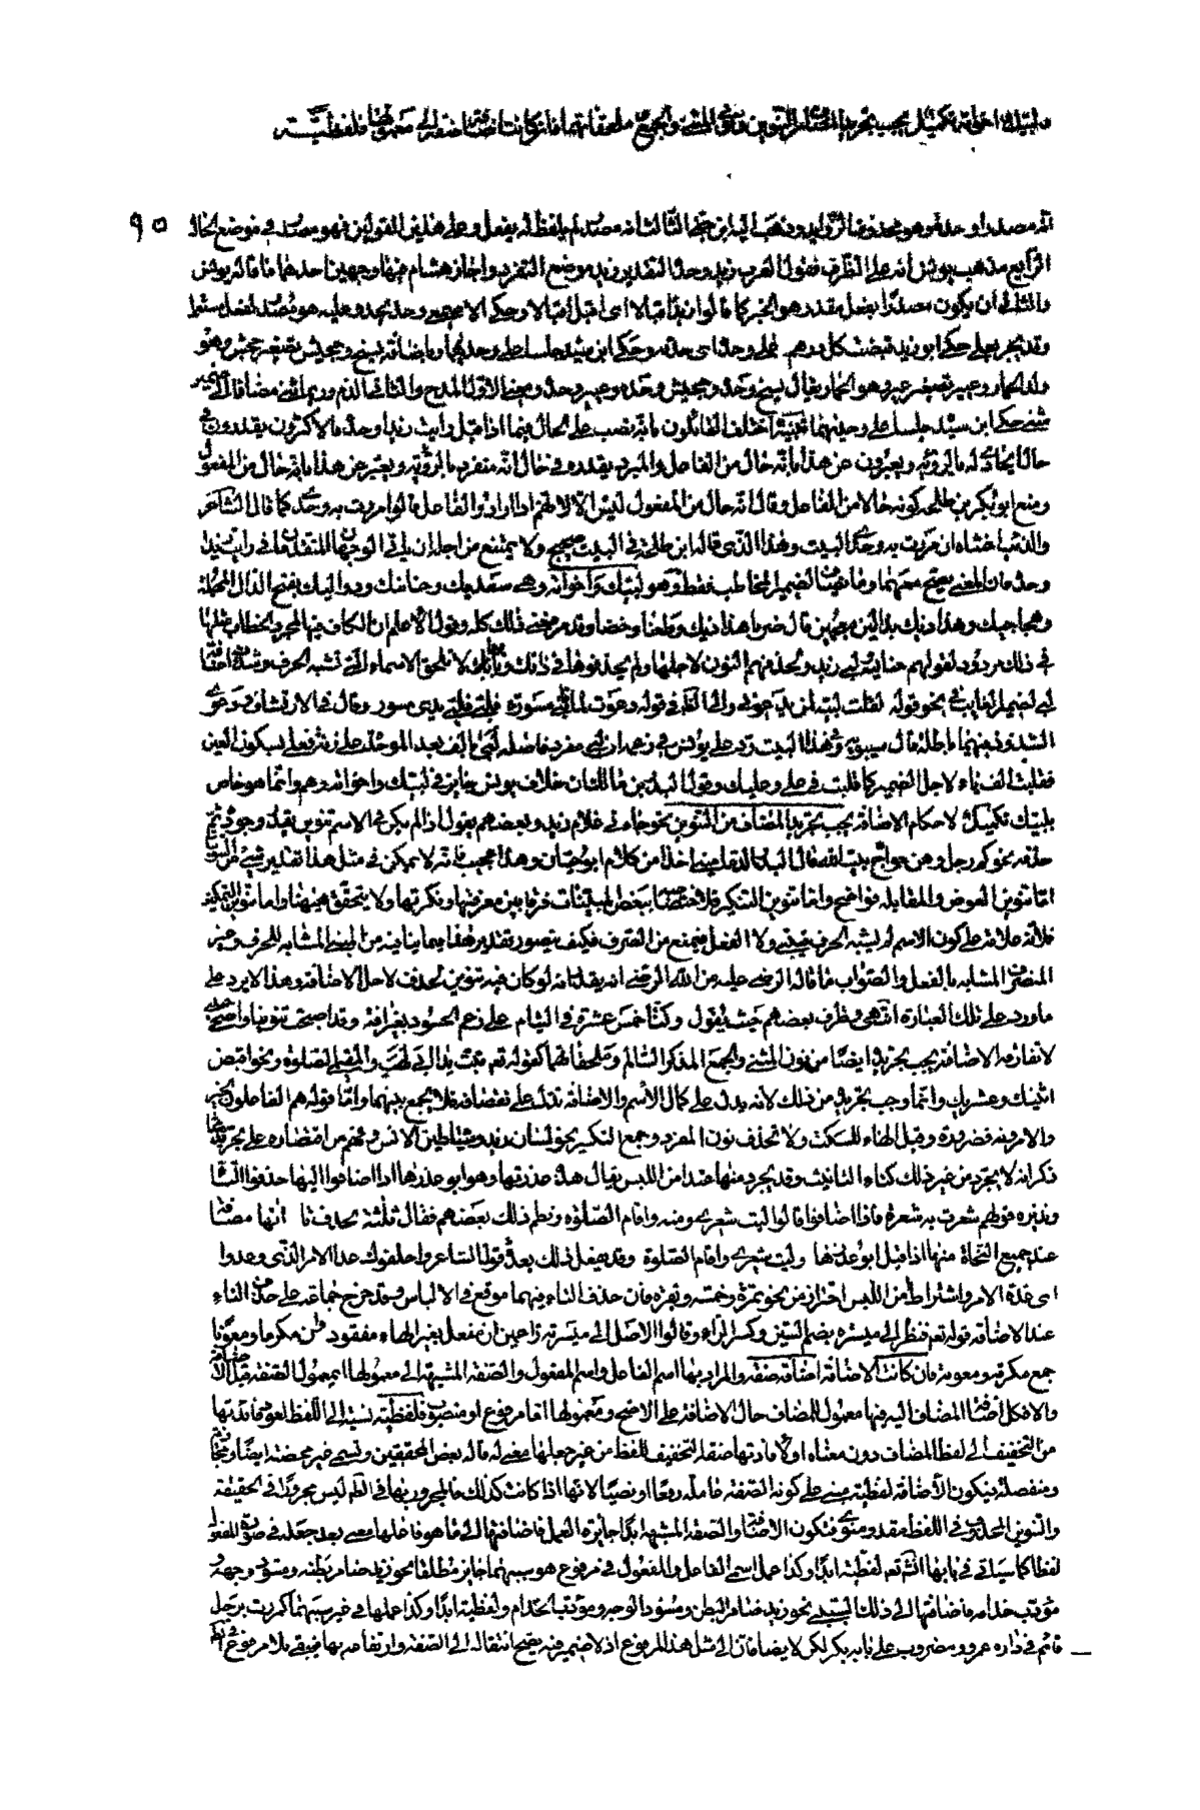 ولبيك واخواته تكميل يجب تجريد المضاف عن التنوين ونوني المثنى والجمع وملحقاتهما فان كانت اضافة صفة الى معمولها فلفظية
٩٥
انه مصدر اوحد وهو محذوف الزوائد وذهب اليه ابن جني الثالث انه مصدر لم يلفظ له بفعل وعلى هذين القولين فهو مصدر في موضع الحال
الرابع مذهب يونس انه على الظرف فقول العرب زيد وحده التقدير زيد موضع التفرد واجاز هشام فيها وجهين احدهما ما قاله يونس
والثاني ان يكون مصدرا بفعل مقدر هو الخبر كما قالوا زيد اقبالا اى اقبل اقبالا وحكى الاصمعي وحد يحد وعليه هو مصدر لفعل مستعمل
وقد يجر بعلى حكى ابو زيد قبضت كل درهم على وحده اى حدته وحكى ابن سيده جلسا على وحدهما وباضافة نسيج وجحيش تصغير جحش وهو
ولد الحمار وعيير تصغير عير وهو الحمار يقال نسيج وحده وجحيش وحده وعيير وحده ومعنى الاول المدح والثاني الذم وربما ثنى مضافا الى ضمير
مثنى حكى ابن سيده جلسا على وحديهما تنبيه اختلف القائلون بانه نصب على الحال فيما اذا قيل رايت زيدا وحده فالاكثرون يقدرون في
حال ايحادى له بالرؤية ويعبرون عن هذا بانه حال من الفاعل والمبرد يقدره في حال انه منفرد بالرؤية ويعبر عن هذا بانه حال من المفعول
ومنع ابو بكر بن طلحه كونه حالا من الفاعل وقال انه حال من المفعول ليس الا لانهم اذا ارادوا الفاعل قالوا مررت به وحدى كما قال الشاعر
والذئب اخشاه ان مررت به وحدى البيت وهذا الذي قاله ابن طلحة في البيت صحيح ولا يمتنع من اجله ان ياتي الوجهان المتقدمان في رايت زيدا
وحده فان المعنى يصح معهما وما يضاف لضمير المخاطب فقط وهو لبيك واخواته وهى سعديك وحنانيك ودواليك بفتح الدال المهملة
وهجاجيك وهذاذيك بذالين معجمتين قال ضربا هذاذيك وطعنا وخضا وقد مر معنى ذلك كله وقول الاعلم ان الكاف فيها لمجرد الخطاب مثلها
في ذلك مردود لقولهم حنانيه ولبي زيد ولحذفهم النون لاجلها ولم يحذفوها في ذانك وبانها لا تلحق الاسماء التي تشبه الحرف وشذت اضافة
لبي لضمير الغايب في نحو قوله لقلت لبيه لمن يدعوني والى الظاهر في قوله دعوت لما نابني مسورا فلبي فلبي يدي مسور وقال في الارتشاف ودعوى
الشذوذ فيهما باطلة قال سيبويه وفي هذا البيت رد على يونس في زعمه ان لبي مفرد فاصله لببا بالف بعد الموحدة على زنة فعلى بسكون العين
فقلبت الفه ياء لاجل الضمير كما قلبت في على وعليك وقول البدر بن مالك ان خلاف يونس جار في لبيك واخواته وهم وانما هو خاص
بلبيك تكميل لاحكام الاضافة يجب تجريد المضاف من التنوين نحو جاءني غلام زيد وبعضهم يقول اذا لم يكن في الاسم تنوين يقدر وجوده ثم
حذفه نحو كم رجل وهن حواج بيت الله قال البدر الدماميني اخذا من كلام ابو حيان وهذا عجيب فانه لا يمكن في مثل هذا تقدير شيء من التنوين
اما تنوين العوض والمقابلة فواضح واما تنوين التنكير فلاختصاصه ببعض المبنيات فرقا بين معرفتها ونكرتها ولا يتحقق هيهنا واما تنوين التمكين
فلانه علامة على كون الاسم لم يشبه الحرف فيبنى ولا الفعل فيمنع من الصرف فكيف يتصور تقدير هذا فيما ينافيه من المبنى المشابه للحرف وغير
المنصرف المشابه بالفعل والصواب ما قاله الرضي عليه من الله الرضى انه يقدر انه لو كان فيه تنوين لحذف لاجل الاضافة وهذا لا يرد على
ما ورد على تلك العبارة انتهى وظرف بعضهم حيث يقول وكنا خمس عشرة في التيام على رغم الحسود بغير افة وقد اصبحت تنوينا واضحى حبيبي
لا تفارقه الاضافة يجب تجريده ايضا من نون المثنى والجمع المذكر السالم وملحقاتهما كقوله تعم تبت يدا ابي لهب والمقيمي الصلوة ونحو اقبض
اثنيك وعشريك وانما وجب تجريده من ذلك لانه يدل على كمال الاسم والاضافة تدل على نقصانه فلا يجمع بينهما واما قوله هم الفاعلون الخير
والامرونه فضرورة وقيل الهاء للسكت ولا تحذف نون المفرد وجمع التكسير نحو لسان زيد وشياطين الانس وفهم من اقتصاره على تجريده مما
ذكر انه لا يجرد من غير ذلك كتاء التانيث وقد يجرد منها عند امن اللبس يقال هذه عذرتها وهو ابو عذرها اذا اضافوا اليها حذفوا التاء
ونظيره قولهم شعرت به شعرة فاذا اضافوا قالوا ليت شعري ومنه واقام الصلوة ونظم ذلك بعضهم فقال ثلثة تحذف تا اتها مضافة
عند جميع النحاة منها اذا قيل ابو عذرها وليت شعري واقام الصلوة وقد يفعل ذلك بعده قول الشاعر واخلفوك عدا الامر الذي وعدوا
اى عدة الامر واشتراط امن اللبس احتراز من نحو تمرة وخمسة وبقرة فان حذف التاء فيهما موقع في الالباس وقد خرج جماعة على حذف التاء
عند الاضافة قوله تعم فنظر الى ميسره بضم السين وكسر الراء وقالوا الاصل الى ميسرته زاعمين ان مفعل بغير الهاء مفقود وان مكرما ومعونا
جمع مكرمة ومعونة فان كانت الاضافة اضافة صفة والمراد بها اسم الفاعل واسم المفعول والصفة المشبهة الى معمولها اى معمول الصفة قبل الاضافة
والا فكل اضافة المضاف اليه فيها معمول للمضاف حال الاضافة على الاصح ومعمولها اما مرفوع او منصوب فلفظية نسبة الى اللفظ لعود فائدتها
من التخفيف الى لفظ المضاف دون معناه او لافادتها صفة التخفيف للفظ من غير جعلها معنى له قاله بعض المحققين وتسمى غير محضة ايضا ومجازية
ومنفصلة فيكون الاضافة لفظية مبنى على كونه الصفة عاملة رفعا او نصبا لانها اذا كانت كذلك فالمجرور بها في الظاهر ليس مجرورا في الحقيقة
والتنوين المحذوف في اللفظ مقدر ومنوى فتكون الاضافة والصفة المشبهة ابدا جايزة العمل فاضافتها الى ما هو فاعلها معنى بعد جعله في صورة المفعول
لفظا كما سياتي في بابها انش تعم لفظية ابدا وكذا عمل اسمى الفاعل والمفعول في مرفوع هو سببهما جايز مطلقا نحو زيد ضامر بطنه ومسود وجهه
مؤدب خدامه فاضافتها الى ذلك السببى نحو زيد ضامر البطن ومسود الوجه ومؤدب الخدام ولفظية ابدا وكذا عملها في غير سببهما كمررت برجل
قائم في داره عمرو ومضروب على بابه بكر لكن لا يضافان الى مثل هذا المرفوع اذ لا ضمير فيه يصح انتقاله الى الصفة وارتفاعه بها فيبقى بلا مرفوع في الظاهر